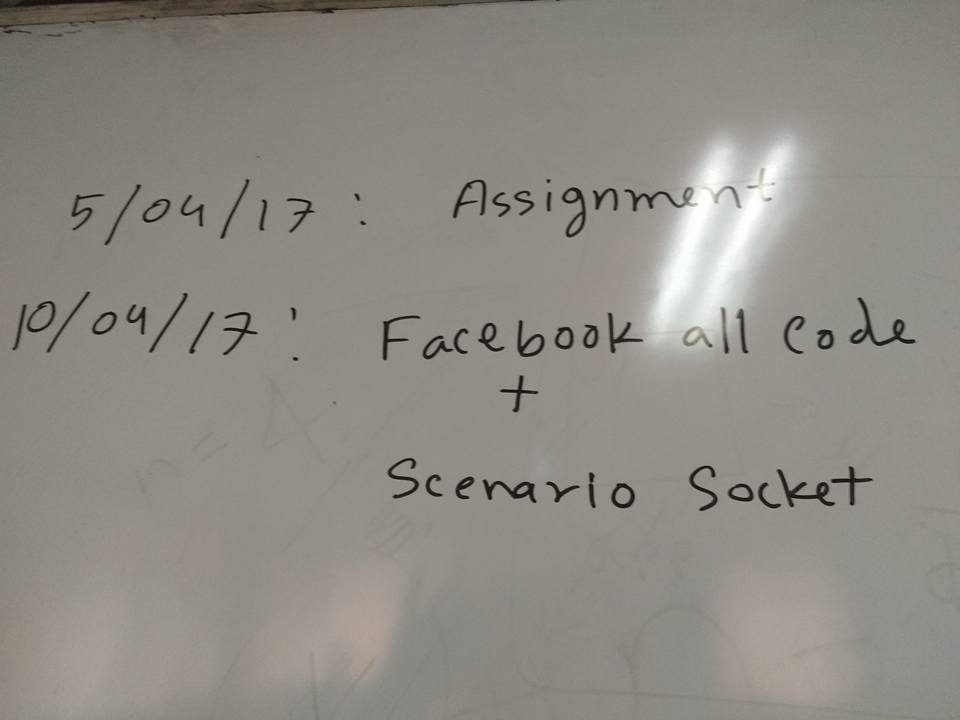 5/04/17 : Assignment
10/04/17 : Facebook all code
+
Scenario Socket
n = 4